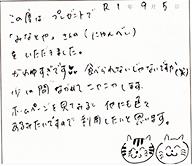 R1年9月5
この度は プレゼントで
「みなとや」さん(にゃんべい)
を いただきました。
かわゆすぎです♥ 食べられないじゃないですか(笑)
少し間 ながめてニコニコします。
ホームページを見てみると 他にも色々
あるみたいですので 利用したいと思います。